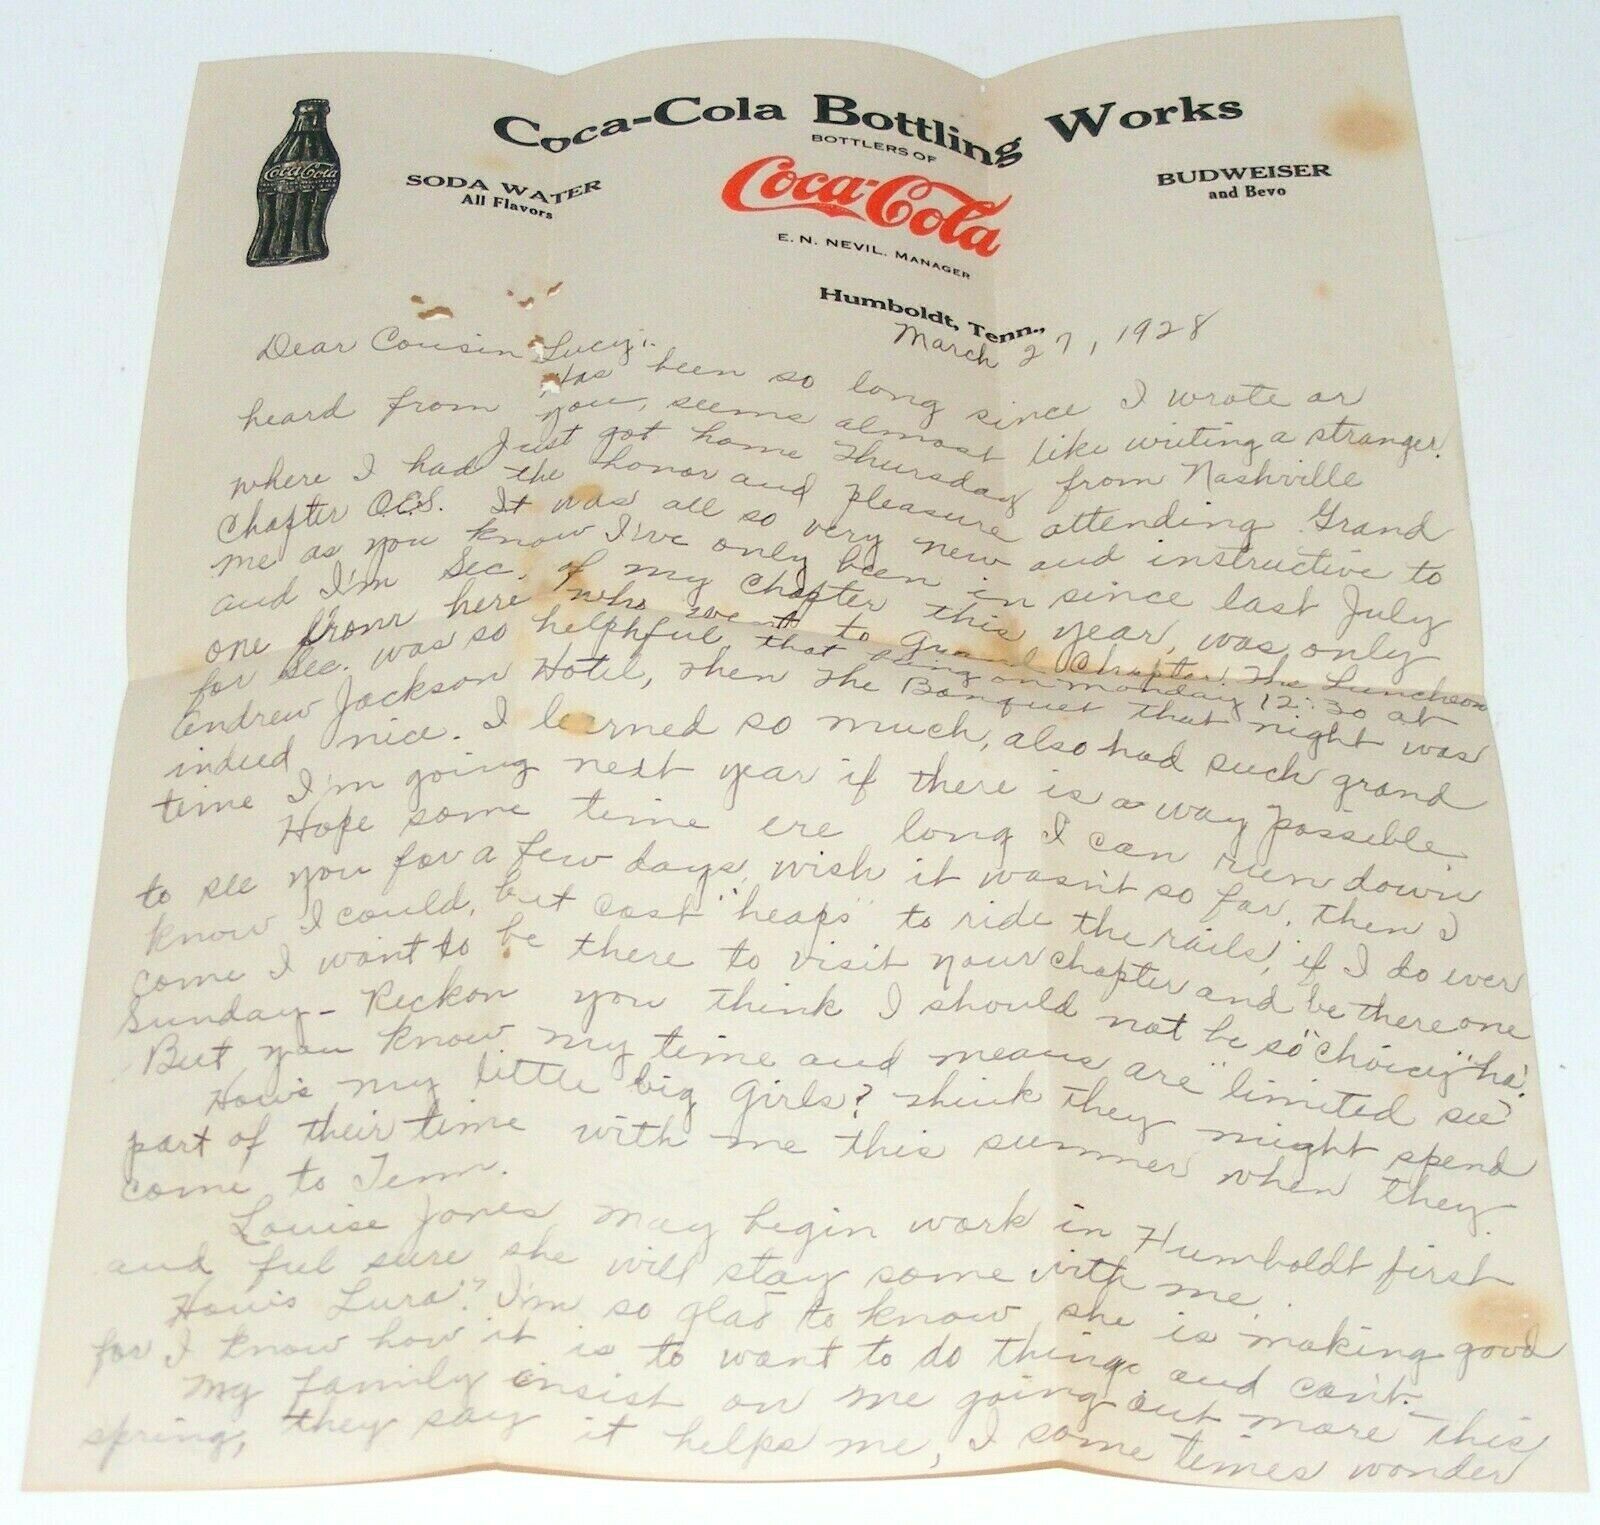 Coca-Cola Bottling Works
BOTTLERS OF
Coca-Cola
SODA WATER
All Flavors
Coca-Cola
BUDWEISER
and Bevo
E. N. NEVIL. MANAGER
Humboldt, Tenn.,
March 27, 1928
Dear Cousin Lucy:.
Has been so long since I wrote or
heard from you, seems almost like writing a stranger.
Just got home Thursday from Nashville
where I had the honor and pleasure attending Grand
Chapter O.E.S. It was all so very new and instructive to
me as you know I've only been in since last July
and I'm Sec. of my Chapter this year, was only
one from here who went to Grand Chapter. The Luncheon
for Sec. was so helphful, that being on monday 12:30 at
Andrew Jackson Hotel, then the Banquet that night was
indeed nice. I learned so much, also had such grand
time I'm going next year if there is a way possible.
Hope some time ere long I can run down
to see you for a few days, wish it wasn't so far, then I
know I could, but cost "heaps" to ride the rails, if I do ever
come I want to be there to visit your chapter and be there one
Sunday - Reckon you think I should not be so "choicy" ha!
But you know my time and means are "limited see"
How's my little big girls? think they might spend
part of their time with me this summer when they
come to Tenn.
Louise Jones may begin work in Humboldt first
and feel sure she will stay some with me.
How's Lura? I'm so glad to know she is making good
for I know how it is to want to do things and can't.
My family insist on me going out more this
spring, they say it helps me, I some times wonder